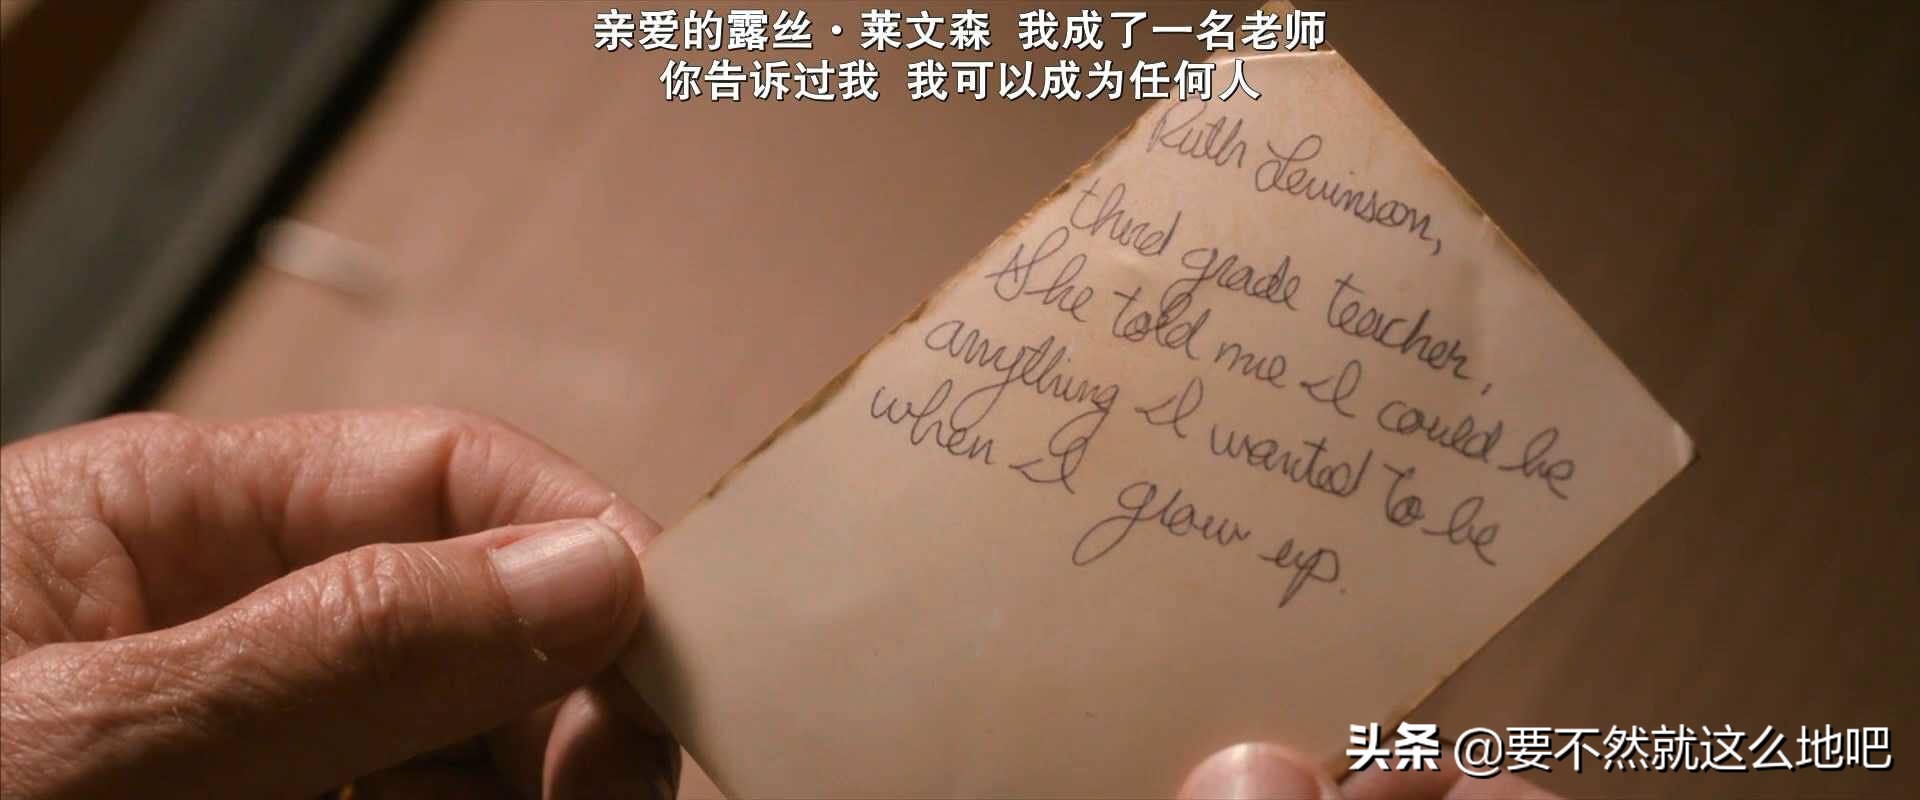 亲爱的露丝·莱文森 我成了一名老师
你告诉过我 我可以成为任何人
Ruth Levinson,
third grade teacher.
She told me I could be
anything I wanted to be
when I grow up.
头条 @要不然就这么地吧